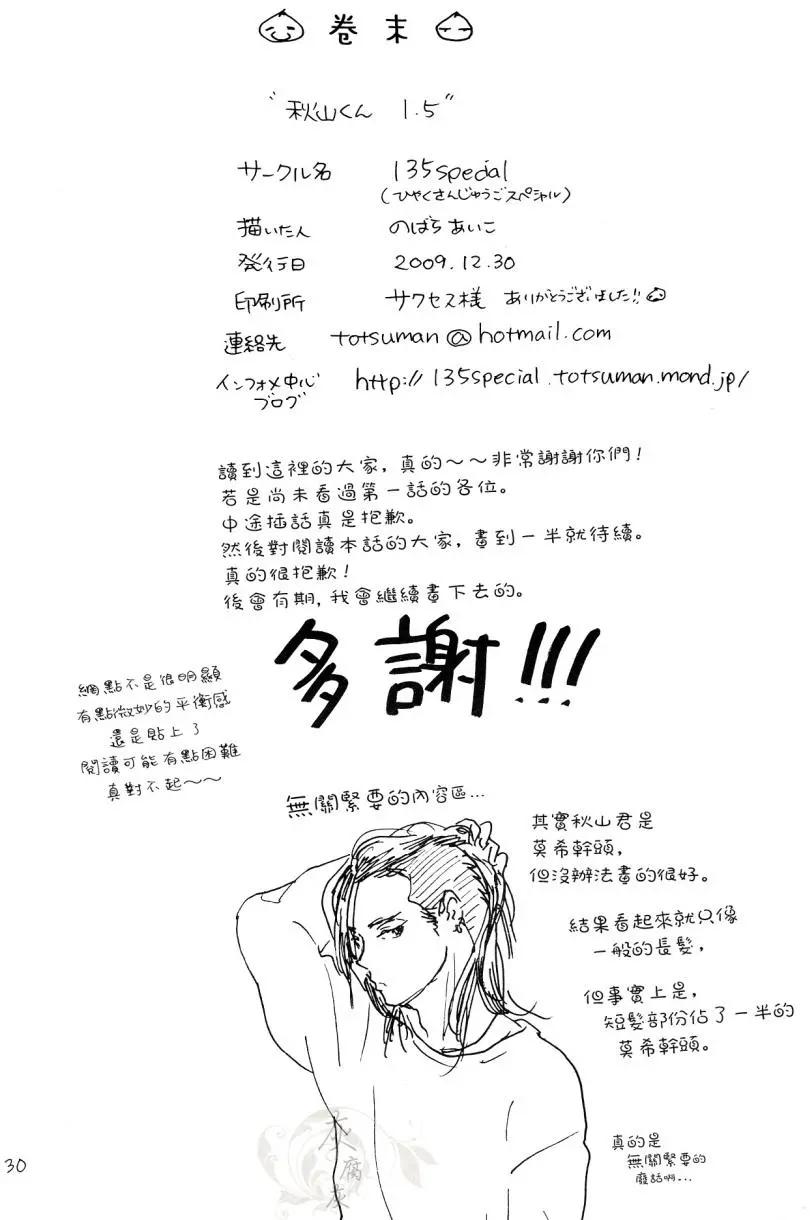 卷末
"秋山くん 1.5"
サークル名 135special
(ひゃくさんじゅうごスペシャル)
描いた人 のばらあいこ
発行日 2009.12.30
印刷所 サクセス様 ありがとうございました!!
連絡先 totsuman@hotmail.com
インフォメ中心 http://135special.totsuman.mond.jp/
ブログ
讀到這裡的大家,真的~~非常謝謝你們!
若是尚未看過第一話的各位。
中途插話真是抱歉。
然後對閱讀本話的大家,畫到一半就待續。
真的很抱歉!
後會有期,我會繼續畫下去的。
多謝!!!
網點不是很明顯
有點微妙的平衡感
還是貼上了
閱讀可能有點困難
真對不起~~
無關緊要的內容區...
其實秋山君是
莫希幹頭,
但沒辦法畫的很好。
結果看起來就只像
一般的長髮,
但事實上是,
短髮部份佔了一半的
莫希幹頭。
真的是
無關緊要的
廢話啊...
灰
腐
灰
30